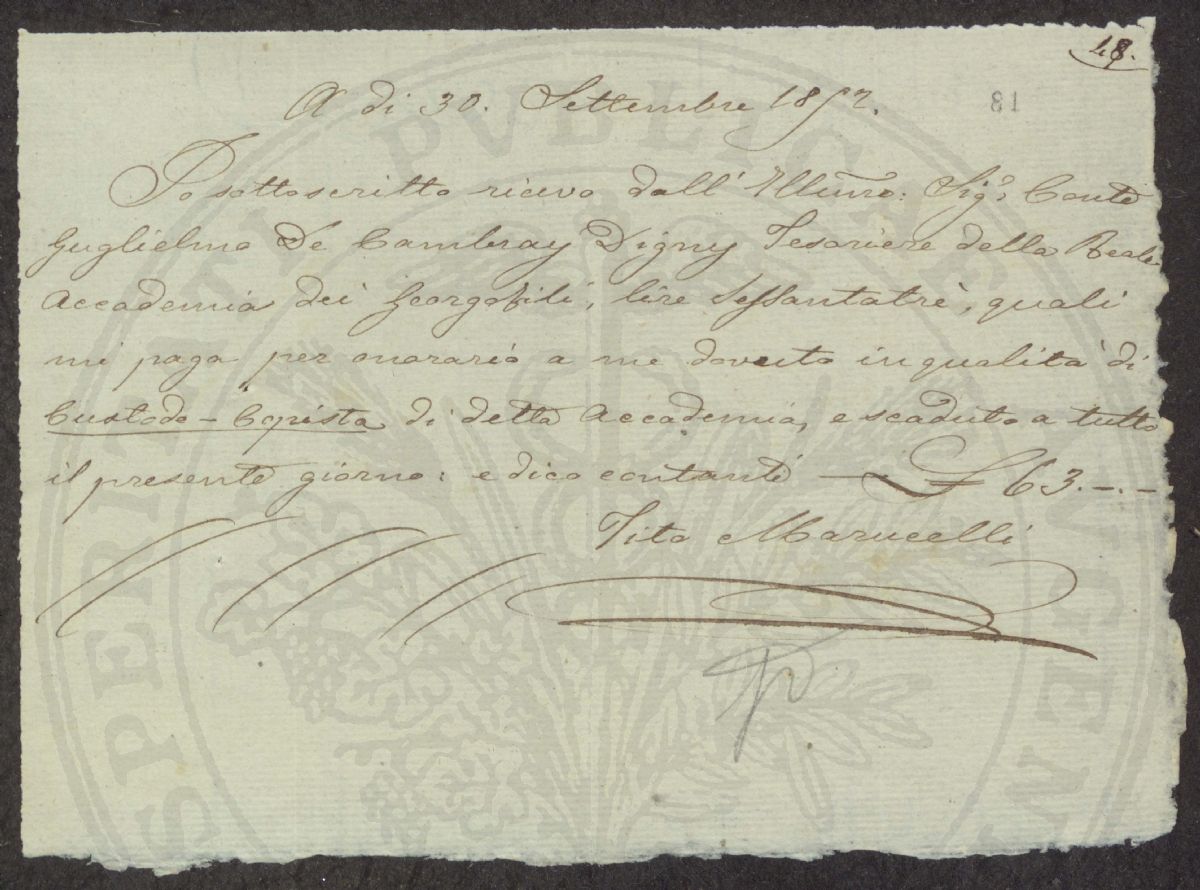 48.
18
A dì 30. Settembre 1852.
Io sottoscritto ricevo dall' Illmo: Sigr. Conte
Guglielmo De Cambray Digny Tesoriere della Reale
Accademia dei Georgofili, lire Sessantatrè, quali
mi paga per onorario a me dovuto in qualità di
Custode-Copista di detta Accademia, e scaduto a tutto
il presente giorno: e dico contanti — £ 63.-.-
Tito Marucelli
PROSPERITATI PVBLICAE AVGENDAE